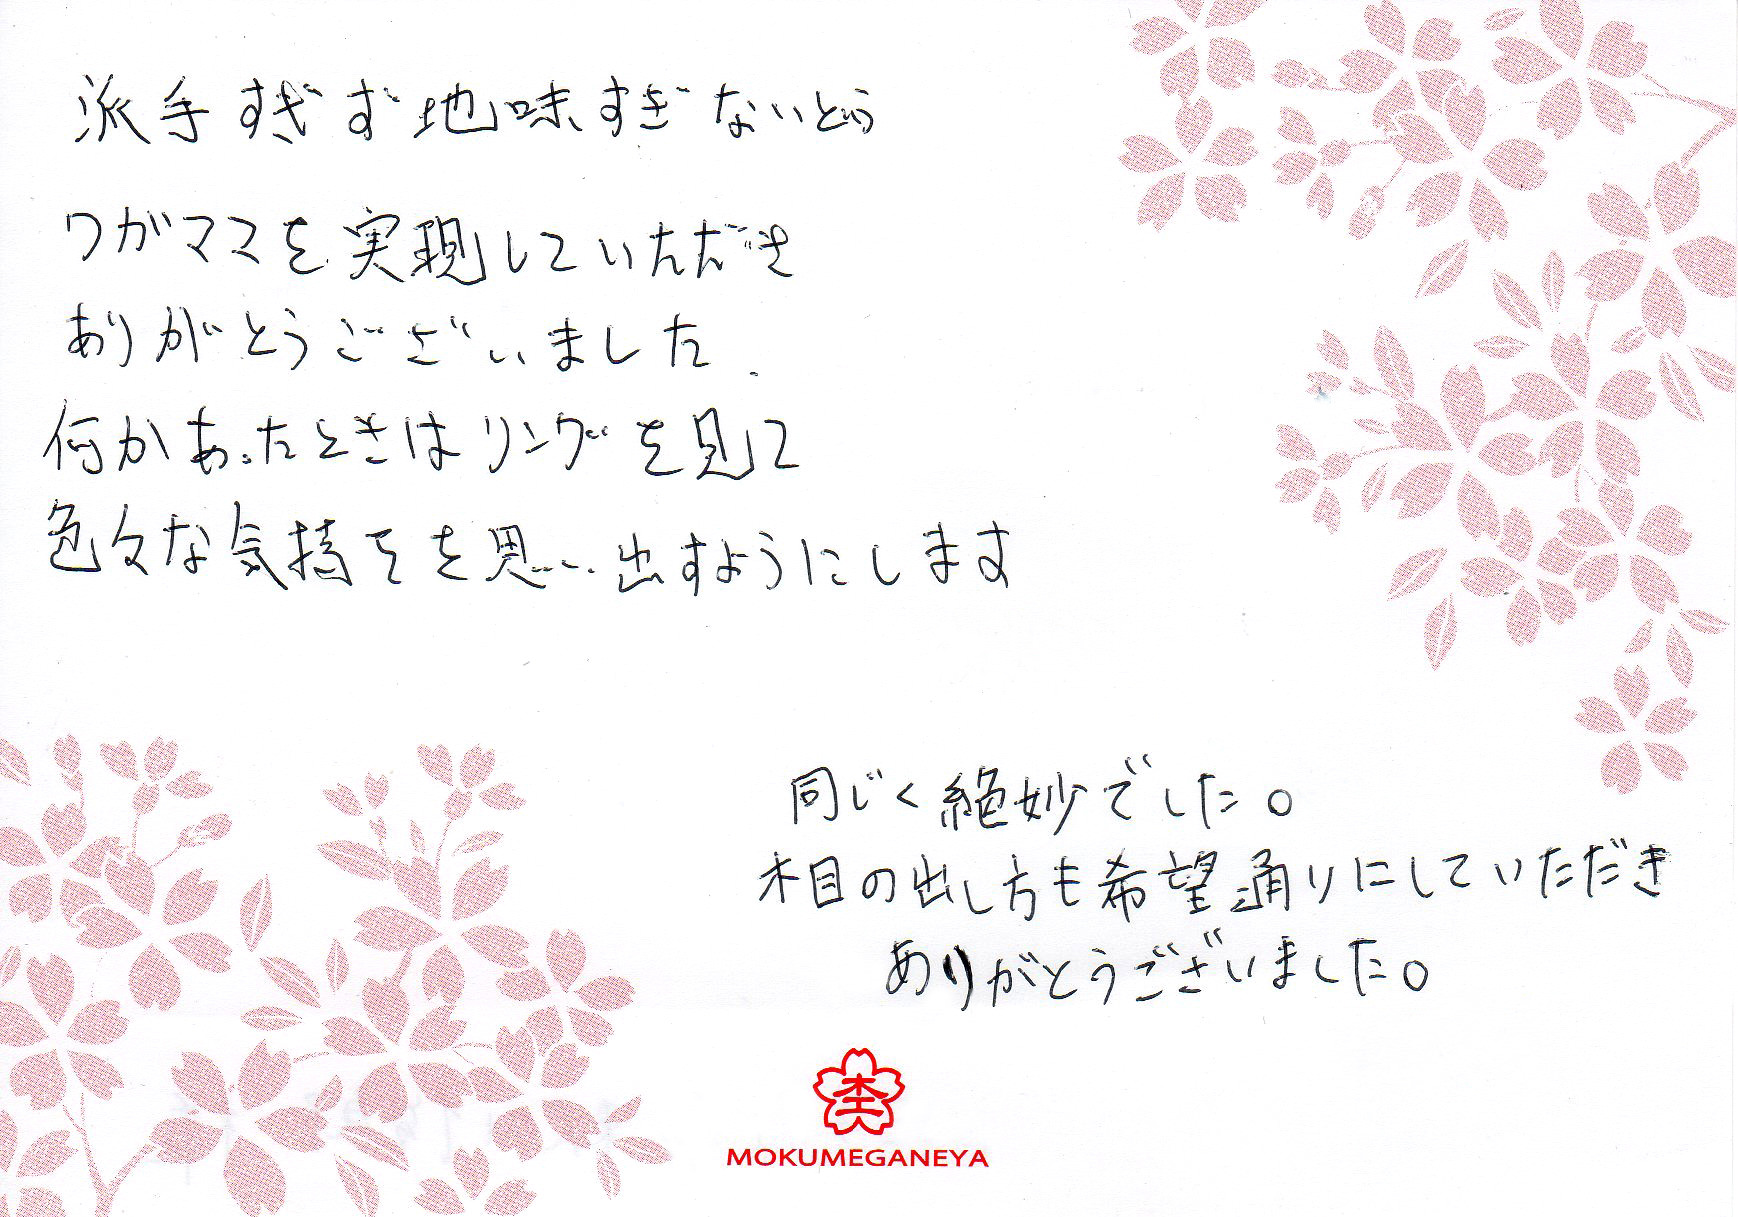 派手すぎず地味すぎないという
ワガママを実現していただき
ありがとうございました.
何かあったときはリングを見て
色々な気持ちを思い出すようにします
同じく絶妙でした。
木目の出し方も希望通りにしていただき
ありがとうございました。
MOKUMEGANEYA